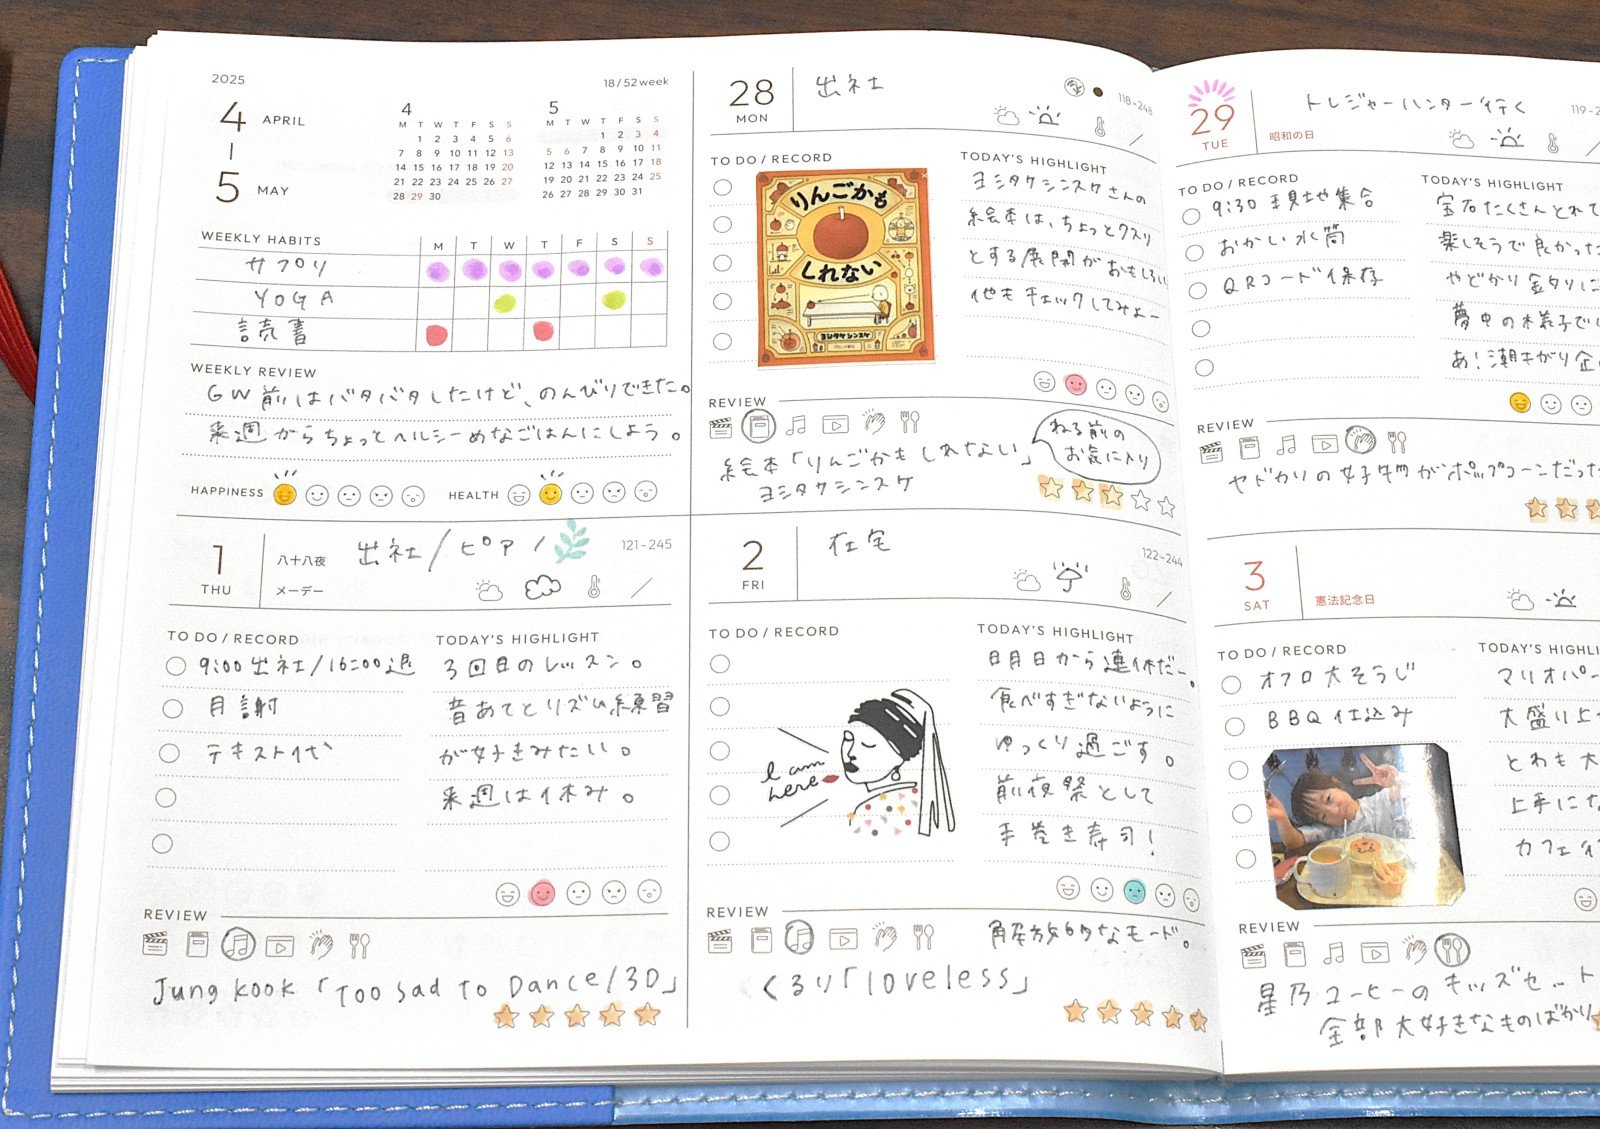 2025
18/52 week
4 APRIL
5 MAY
4
M T W T F S S
1 2 3 4 5 6
7 8 9 10 11 12 13
14 15 16 17 18 19 20
21 22 23 24 25 26 27
28 29 30
5
M T W T F S S
1 2 3 4
5 6 7 8 9 10 11
12 13 14 15 16 17 18
19 20 21 22 23 24 25
26 27 28 29 30 31
WEEKLY HABITS
M T W T F S S
サプリ
YOGA
読書
WEEKLY REVIEW
GW前はバタバタしたけど、のんびりできた。
来週からちょっとヘルシーめなごはんにしよう。
HAPPINESS
HEALTH
28
MON
出社
118-248
TO DO / RECORD
りんごかも
しれない
ヨシタケシンスケ
TODAY'S HIGHLIGHT
ヨシタケシンスケさんの
絵本は、ちょっとクスリ
とする展開がおもしろい
他もチェックしてみよー
REVIEW
絵本「りんごかもしれない」
ヨシタケシンスケ
ねる前の
お気に入り
29
TUE
昭和の日
トレジャーハンター行く
TO DO / RECORD
9:30 現地集合
おかし 水筒
QRコード保存
TODAY'S HIGHLIGHT
宝石たくさんとれて
楽しそうで良かった
やどかり釣りに
夢中の様子で
あ!潮干がり企
REVIEW
ヤドカリの好物がポップコーンだった
1
THU
八十八夜
メーデー
出社/ピアノ
121-245
TO DO / RECORD
9:00出社/16:00退
月謝
テキスト代
TODAY'S HIGHLIGHT
3回目のレッスン。
音あてとリズム練習
が好きみたい。
来週は休み。
REVIEW
Jung kook「Too Sad To Dance/3D」
2
FRI
在宅
122-244
TO DO / RECORD
I am
here
TODAY'S HIGHLIGHT
明日から連休だー。
食べすぎないように
ゆっくり過ごす。
前夜祭として
手巻き寿司!
REVIEW
解放的なモード。
くるり「loveless」
3
SAT
憲法記念日
TO DO / RECORD
オフロ大そうじ
BBQ仕込み
TODAY'S HIGHLI
マリオパー
大盛り上
とわも大
上手にな
カフェ行
REVIEW
星乃コーヒーのキッズセット
全部大好きなものばかり